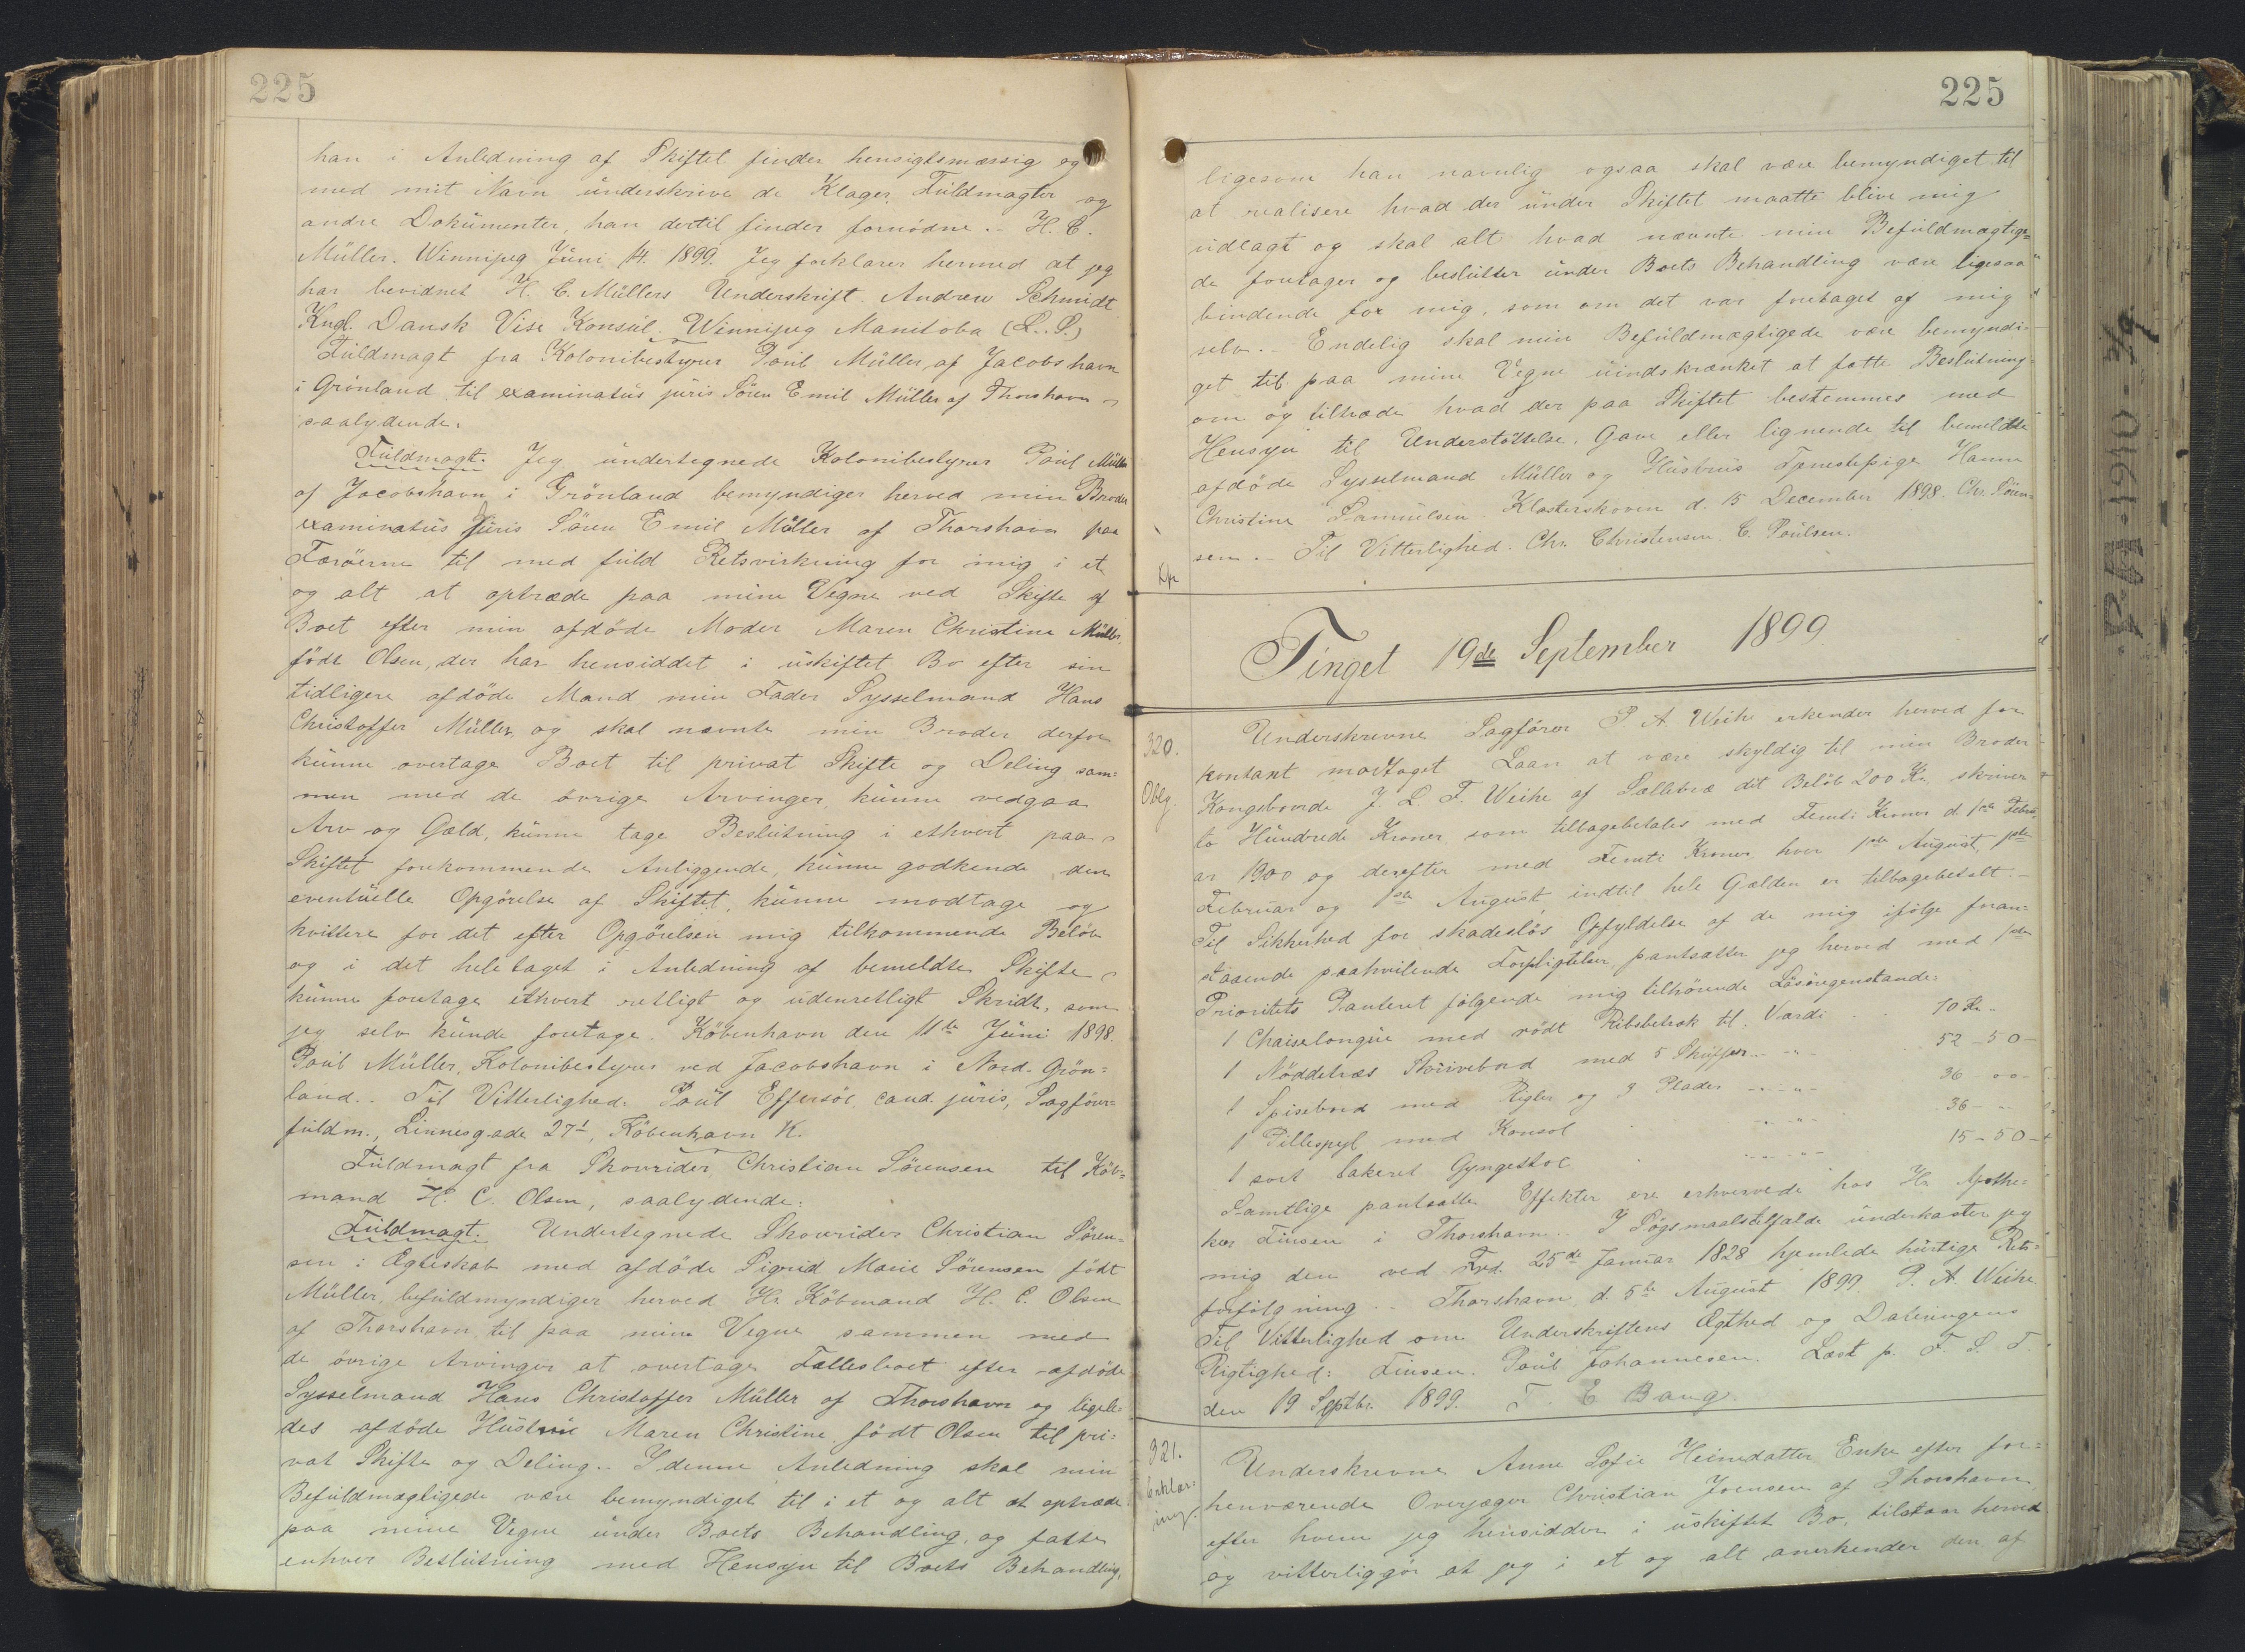 225
han i Anledning af Skiftet finder hensigtsmæssig og
med mit Navn underskrive de Klager, Fuldmagter og
andre Dokumenter, han dertil finder fornødne. - H. C.
Müller. Winnipeg Juni 14. 1899. Jeg forklarer hermed at jeg
har bevidnet H. C. Müllers Underskrift. Andrew Schmidt
Kngl. Dansk Vise Konsul. Winnipeg Manitoba (L.S.)
Fuldmagt fra Kolonibestyrer Poul Müller af Jacobshavn
i Grönland til examinatus juris Sören Emil Müller af Thorshavn
saalydende:
Fuldmagt. Jeg undertegnede Kolonibestyrer Poul Müller
af Jacobshavn i Grönland bemyndiger herved min Broder
examinatus juris Sören Emil Müller af Thorshavn paa
Færöerne til med fuld Retsvirkning for mig i et
og alt at optræde paa mine Vegne ved Skifte af
Boet efter min afdöde Moder Maren Christine Müller,
født Olsen, der har hensiddet i uskiftet Bo efter sin
tidligere afdöde Mand min Fader Sysselmand Hans
Christoffer Müller og skal nævnte min Broder derfor
kunne overtage Boet til privat Skifte og Deling sam=
men med de övrige Arvinger, kunne vedgaa
Arv og Gæld, kunne tage Beslutning i ethvert paa
Skiftet forekommende Anliggende, kunne godkende den
eventuelle Opgörelse af Skiftet, kunne modtage og
kvittere for det efter Opgörelsen mig tilkommende Belöb
og i det hele taget i Anledning af bemeldte Skifte
kunne foretage ethvert retligt og udenretligt Skridt, som
jeg selv kunde foretage. Köbenhavn den 11te Juni 1898.
Poul Müller, Kolonibestyrer ved Jacobshavn i Nord-Grön=
land. - Til Vitterlighed: Poul Effersöe cand. juris, Sagförer=
fuldm., Linnesgade 27¹, Köbenhavn K.
Fuldmagt fra Skovrider Christian Sörensen til Köb=
mand H. C. Olsen, saalydende:
Fuldmagt. Undertegnede Skovrider Christian Sören=
sen i Ægteskab med afdöde Sigrid Marie Sörensen født
Müller, befuldmyndiger herved Hr. Köbmand H. C. Olsen
af Thorshavn til paa mine Vegne sammen med
de övrige Arvinger at overtage Fællesboet efter afdöde
Sysselmand Hans Christoffer Müller af Thorshavn og ligele=
des afdöde Hustrue Maren Christine født Olsen til pri=
vat Skifte og Deling. - I denne Anledning skal min
Befuldmægtigede være bemyndiget til i et og alt at optræde
paa mine Vegne under Boets Behandling, og fatte
enhver Beslutning med Hensyn til Boets Behandling,
225
ligesom han navnlig ogsaa skal være bemyndiget til
at realisere hvad der under Skiftet maatte blive mig
udlagt og skal alt hvad nævnte min Befuldmægtige=
de foretager og beslutter under Boets Behandling være ligesaa
bindende for mig, som om det var foretaget af mig
selv. - Endelig skal min Befuldmægtigede være bemyndi=
get til paa mine Vegne uindskrænket at fatte Beslutning
om og tiltræde hvad der paa Skiftet bestemmes med
Hensyn til Understöttelse, Gave eller lignende til bemeldte
afdöde Sysselmand Müller og Hustrus Tjenestepige Hanne
Christine Samuelsen. Klosterskoven d. 15 December 1898. Chr. Sören=
sen. - Til Vitterlighed. Chr. Christensen. C. Poulsen.
Tinget 19de September 1899.
320.
Oblg.
Underskrevne Sagförer P. A. Weihe erkender herved for
kontant modtaget Laan at være skyldig til min Broder
Kongsbonde J. D. F. Weihe af Sællebræ det Belöb 200 Kr., skriver
to Hundrede Kroner, som tilbagebetales med Femti Kroner d. 1ste Febru=
ar 1900 og derefter med Femti Kroner hver 1ste August, 1ste
Februar og 1ste August indtil hele Gælden er tilbagebetalt. -
Til Sikkerhed for skadeslös Opfyldelse af de mig ifölge foran=
staaende paahvilende Forpligtelser, pantsætter jeg herved med 1ste
Prioritets Panteret fölgende mig tilhörende Lösöregenstande:
1 Chaiselongue med rödt Ribsbetræk til Værdi . . 70 Kr. -
1 Nöddetræs Skrivebord med 5 Skuffer - " - 52 - 50 -
1 Spisebord med Rigler og 3 Plader - " - 36 - 00 -
1 Pillespejl med Konsol - " - 36 - -
1 sort lakeret Gyngestol - " - 15 - 50 -
Samtlige pantsatte Effekter ere erhvervede hos Hr. Apothe=
ker Finsen i Thorshavn. - I Sögsmaalstilfælde underkaster jeg
mig den ved Frd. 25de Januar 1828 hjemlede hurtige Rets=
forfölgning. - Thorshavn d. 5te August 1899. P. A. Weihe
Til Vitterlighed om Underskriftens Ægthed og Dateringens
Rigtighed: Finsen. Poul Johannesen. Læst p. F. S. T.
den 19 Septbr. 1899. T. E Bang.
321.
Erklær=
ing.
Underskrevne Anne Sofie Heinedatter Enke efter for=
henværende Overjæger Christian Joensen af Thorshavn,
efter hvem jeg hensidder i uskiftet Bo, tilstaar herved
og vitterliggör at jeg i et og alt anerkender den af